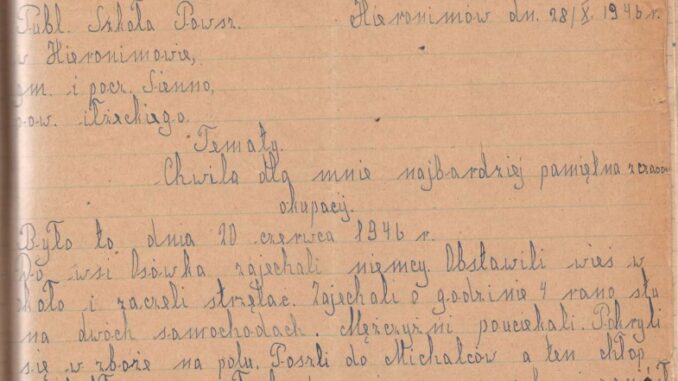 Publ. Szkoła Powsz. Hieronimów dn. 28/X. 1946 r.
w Hieronimowie,
gm. i pocz. Sienno,
pow. iłżeckiego.
Tematy.
Chwila dla mnie najbardziej pamiętna z czasów
okupacji.
Było to dnia 20 czerwca 1946 r.
Do wsi Osówka zajechali niemcy. Obstawili wieś w
koło i zaczeli strzelac. Zajechali o godzinie 4 rano stu
na dwoch samochodach. Mężczyźni pouciekali. Pokryli
się w zboże na polu. Poszli do Michalców a ten chłop